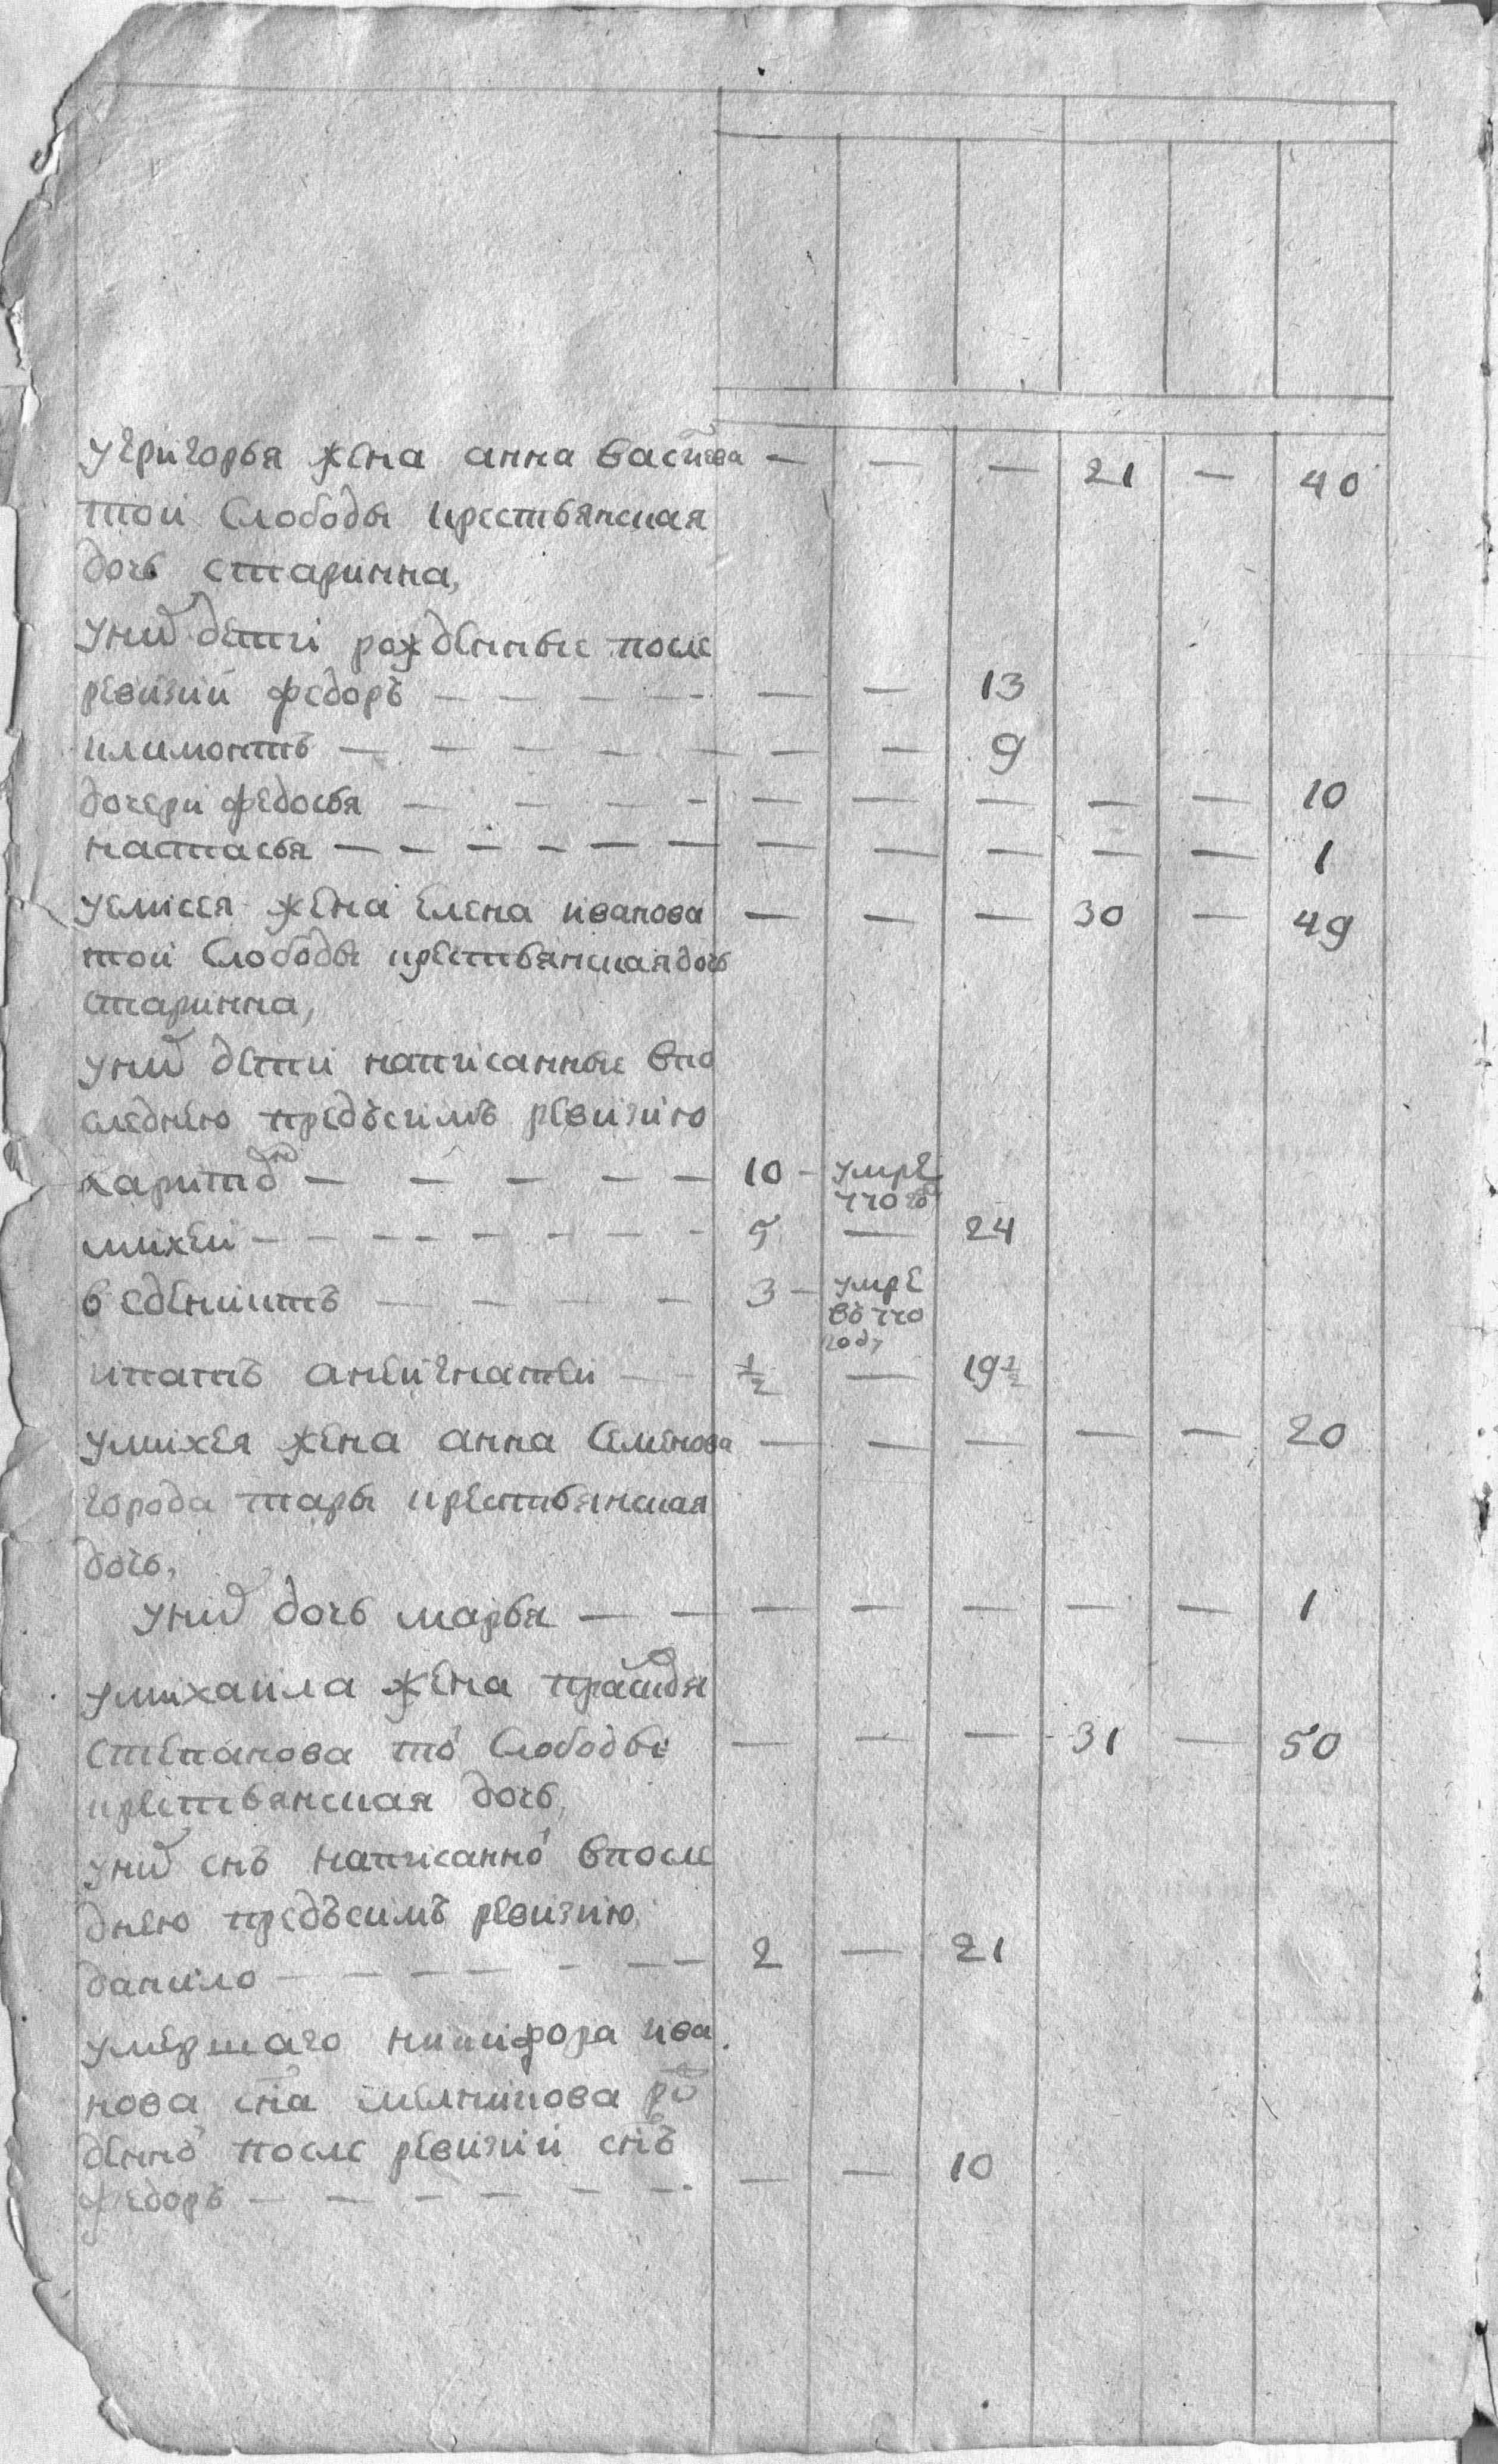 угригорья жена анна васильева — — — 21 — 40
той слободы крестьянская
дочь старинна,
у них дети рожденные после
ревизии федоръ — — — 13
климонтъ — — — 9
дочери федосья — — — — — 10
настасья — — — — — 1
уелисея жена елена иванова — — — 30 — 49
той слободы крестьянская дочь
старинна,
у них дети написанные впо
следнею предъсимъ ревизию
харитон — 10 — умре 770 год
михей — 5 — 24
веденихтъ — 3 — умре
въ 770
году
игнатей — 1/2 — 19 1/2
умихея жена анна семенова — — — — — 20
города тары крестьянская
дочь,
у них дочь марья — — — — — 1
умихаила жена прасковья
степанова той слободы — — — 31 — 50
крестьянская дочь,
у них снъ написанной впосле
днею предъсимъ ревизию,
данило — 2 — 21
умершаго никифора ива
нова сна мелникова рож
денной после ревизии снъ
федоръ — — — 10